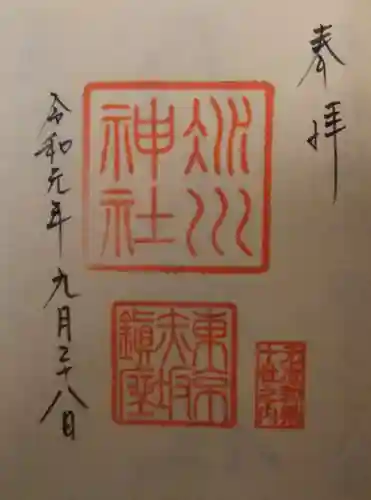 奉拝
氷川
神社
東京
赤坂
鎮座
令和元年九月二十八日